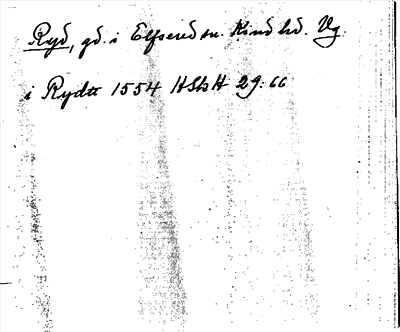 Ryd, gd. i Elfsered sn. Kind hd. Vg.
i Rydtt 1554 HSbH 29:66